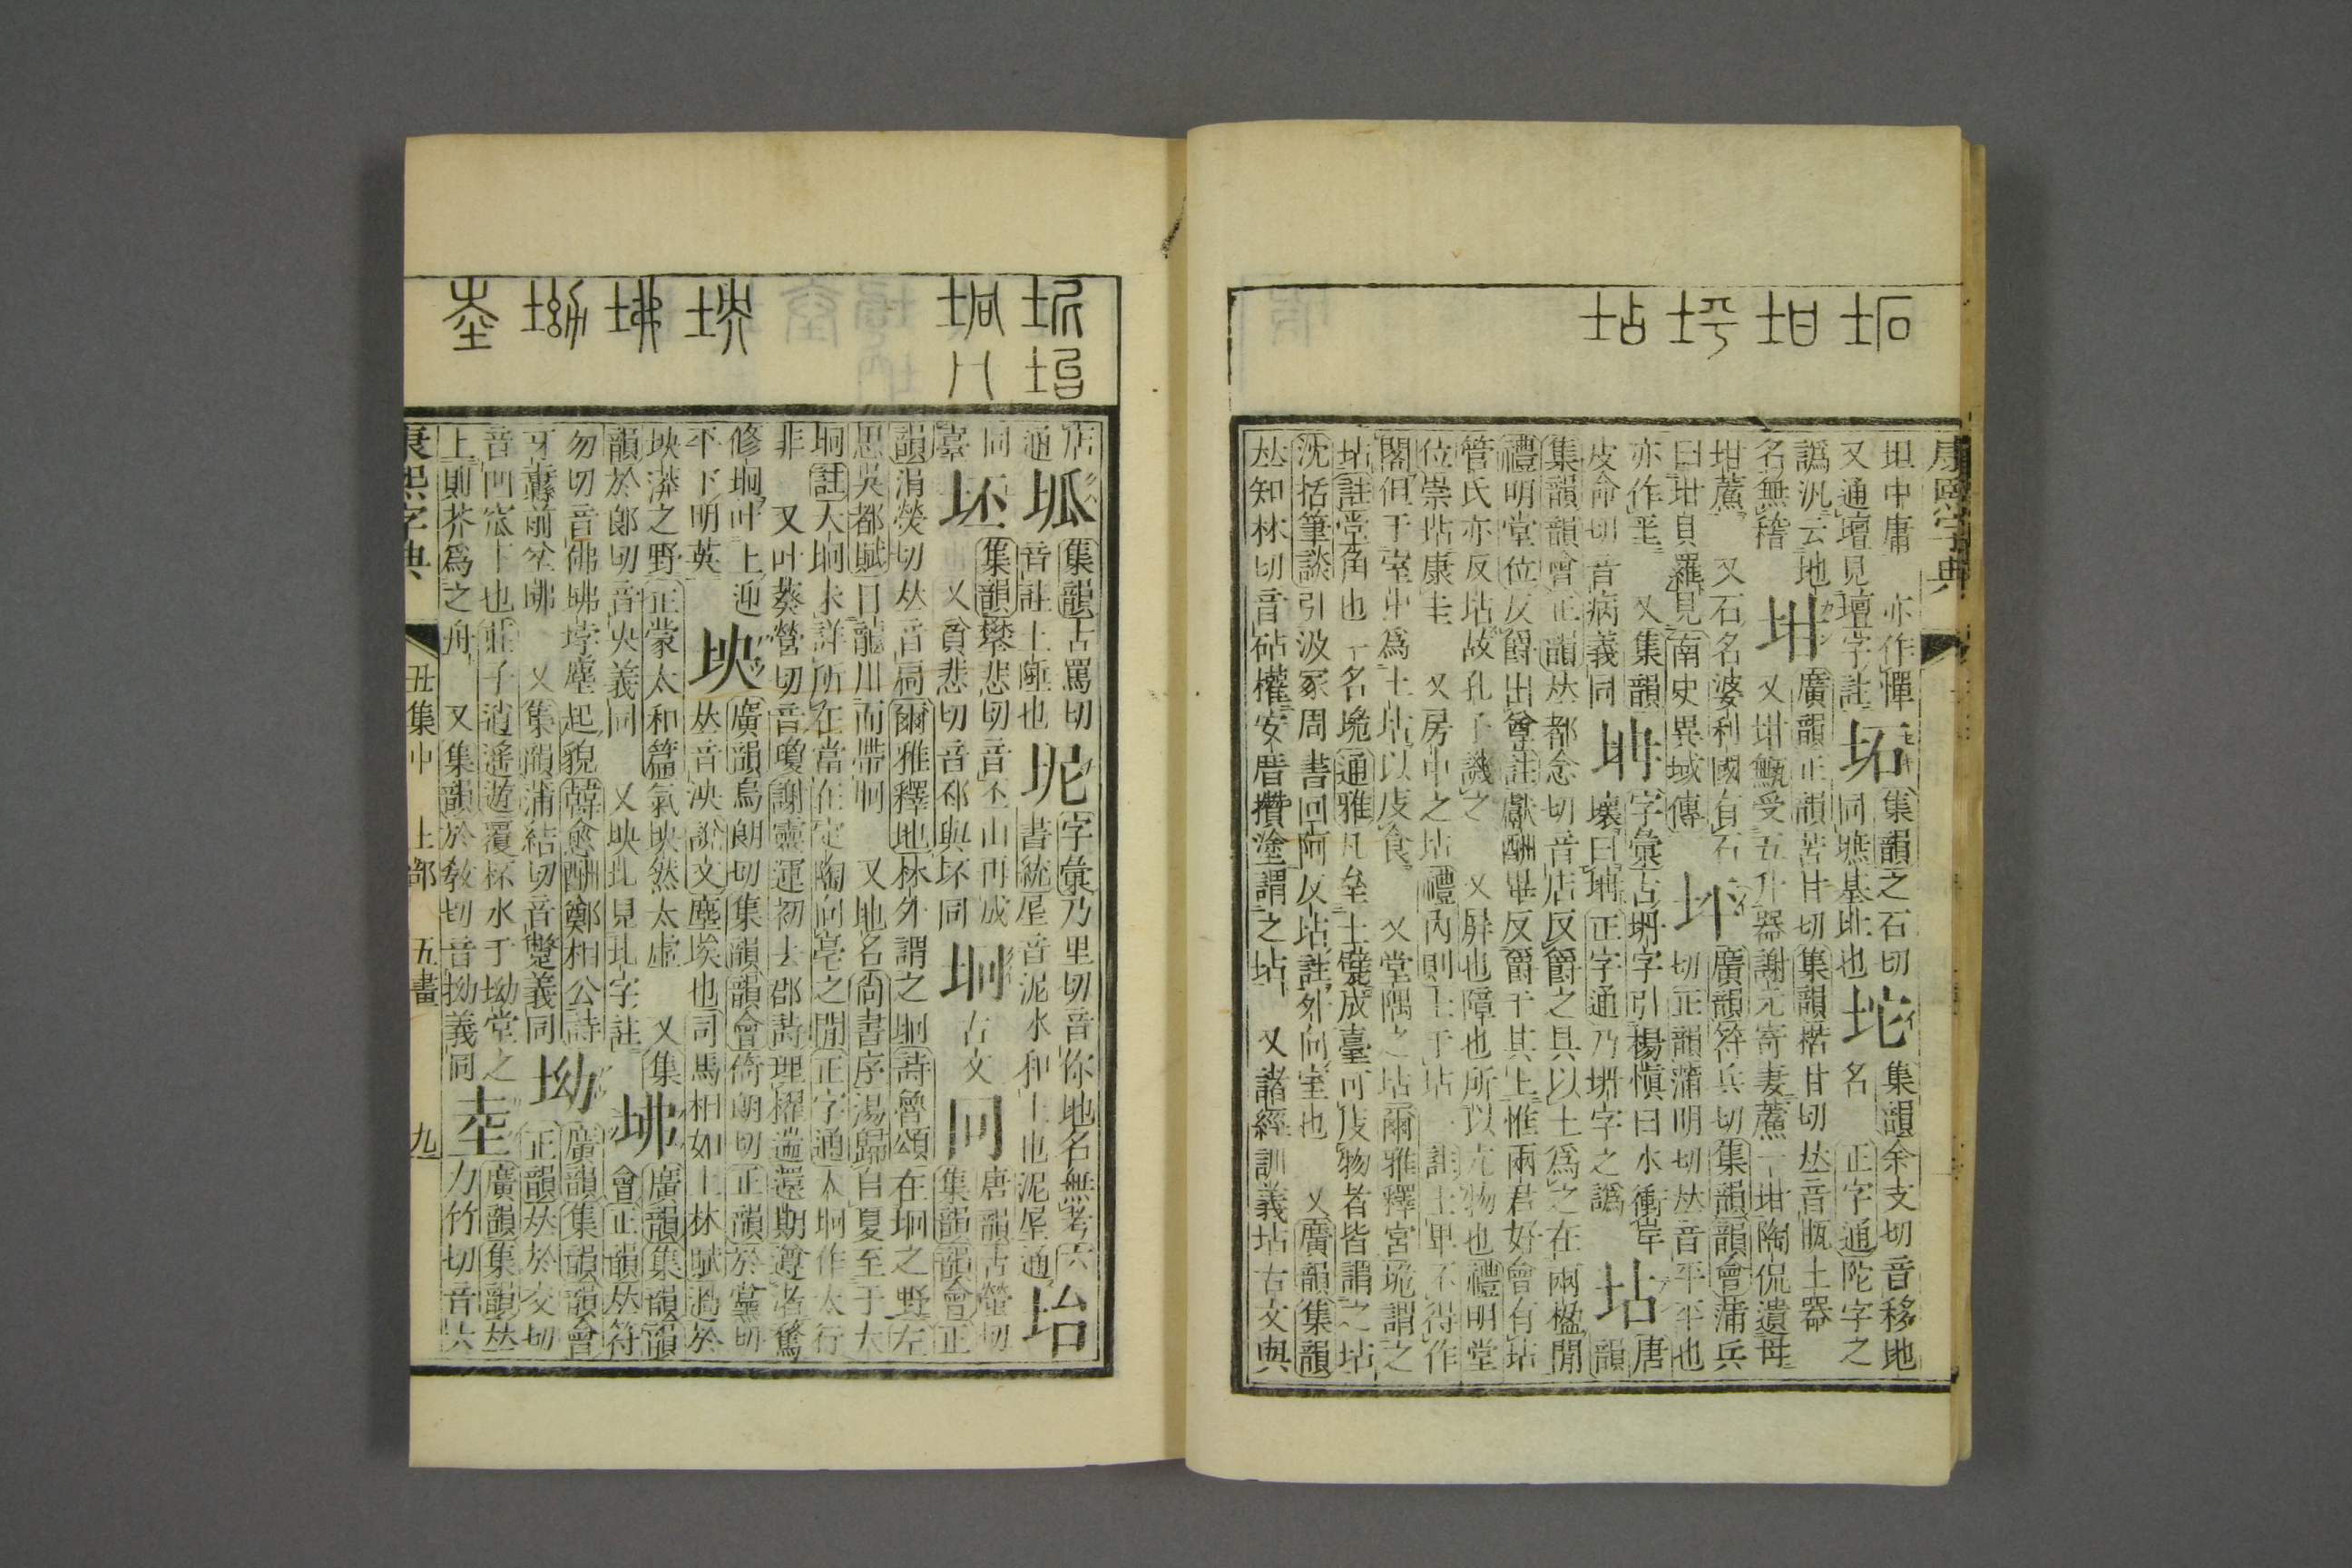 康熙字典
坧 坩 坪 坫
坦中庸 亦作憚 坧 集韻之石切 坨 集韻余支切音移地
又通壇見壇字註 同墌基址也 名 正字通陀字之
譌汎云地 坩 廣韻正韻苦甘切集韻枯甘切𠀤音瓶土器
名無稽 又坩甒受五升器謝元寄妻䕩一坩陶侃遺母
坩䕩 又石名婆利國有石 坪 廣韻符兵切集韻韻會蒲兵
曰坩貝羅見南史異域傳 切正韻蒲明切𠀤音平平也
亦作 又集韻 字彙古坍字引楊愼曰水衝岸 坫 唐
皮命切音病義同 壞曰 正字通乃坍字之譌 韻
集韻韻會正韻𠀤都念切音店反爵之具以土爲之在兩楹閒
禮明堂位反爵出尊註獻酬畢反爵于其上惟兩君好會有坫
管氏亦反坫故孔子譏之 又屛也障也所以亢物也禮明堂
位崇坫康圭 又房中之坫禮內則士于坫一註士卑不得作
閣但于室中爲土坫以庋食 又堂隅之坫爾雅釋宮垝謂之
坫註堂角也一名垝通雅凡垒土甓成臺可庋物者皆謂之坫
沈括筆談引汲冢周書回阿反坫註外向室也 又廣韻集韻
𠀤知林切音砧權安厝攢塗謂之坫 又諸經訓義坫古文與
坭 坮 坰 八 坱 坲 坳 坴
店通 坬 集韻古罵切 坭 字彙乃里切音你地名無考六 坮
音註土隥也 書統屋音泥水和土也泥屋通
同 坯 集韻攀悲切音丕山再成 坰 古文 冋 唐韻古螢切
臺 又貧悲切音邳與坏同 集韻韻會正
韻涓熒切𠀤音扃爾雅釋地林外謂之坰詩魯頌在坰之野左
思吳都賦目龍川而帶坰 又地名尙書序湯歸自夏至于大
坰註大坰未詳所在當在定陶向亳之閒正字通大坰作太行
非 又叶葵營切音瓊謝靈運初去郡詩理櫂遄還期遵渚騖
修坰叶上迎 坱 廣韻烏朗切集韻韻會倚朗切正韻於黨切
平下明英 𠀤音泱說文塵埃也司馬相如上林賦過於
坱漭之野正蒙太和篇氣坱然太虛 又集 坲 廣韻集韻韻
韻於郞切音央義同 又坱圠見圠字註 會正韻𠀤符
勿切音佛坲坲垺塵起貌韓愈酬鄭相公詩 坳 廣韻集韻韻會
牙纛前坌坲 又集韻蒲結切音蹩義同 正韻𠀤於交切
音凹窊下也莊子逍遙遊覆杯水于坳堂之 坴 廣韻集韻𠀤
上則芥爲之舟 又集韻於敎切音拗義同 力竹切音六
康熙字典 丑集中 土部 五畫 九